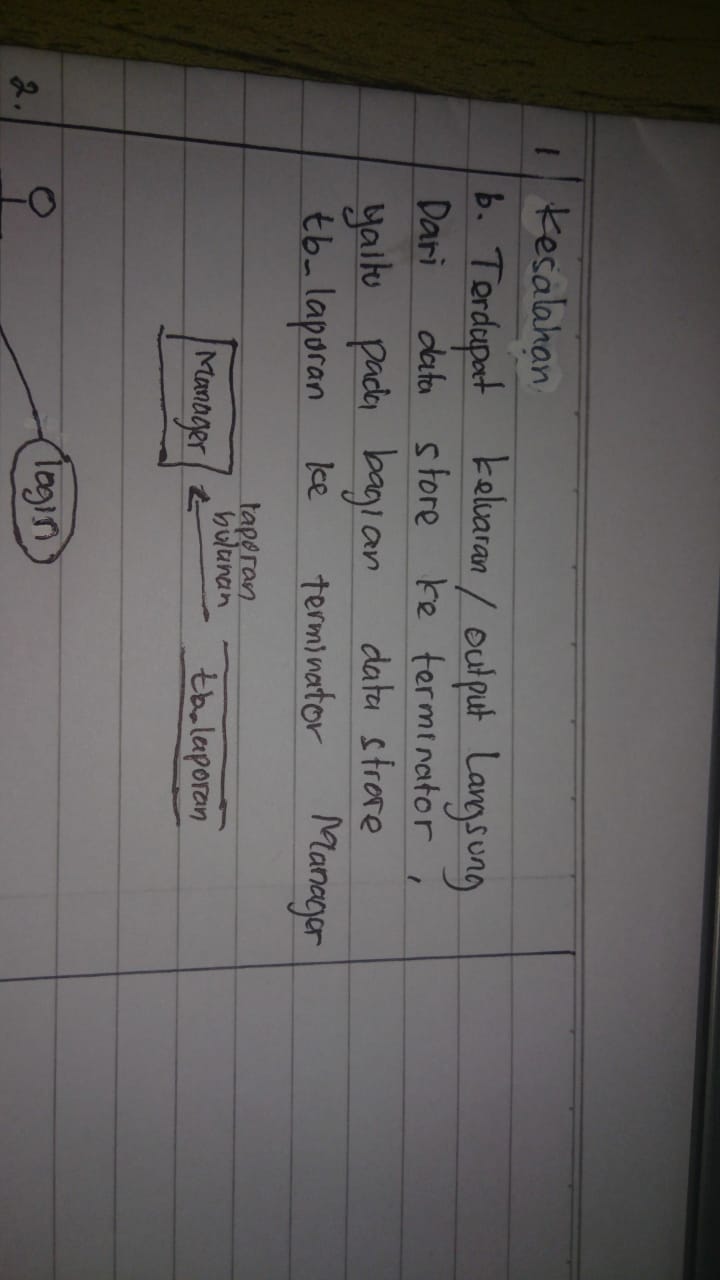 1 Kesalahan
b. Terdapat keluaran / output Langsung
Dari data store ke terminator,
yaitu pada bagian data strore
tb_laporan ke terminator Manager
laporan
bulanan
Manager
tb_laporan
login
2.